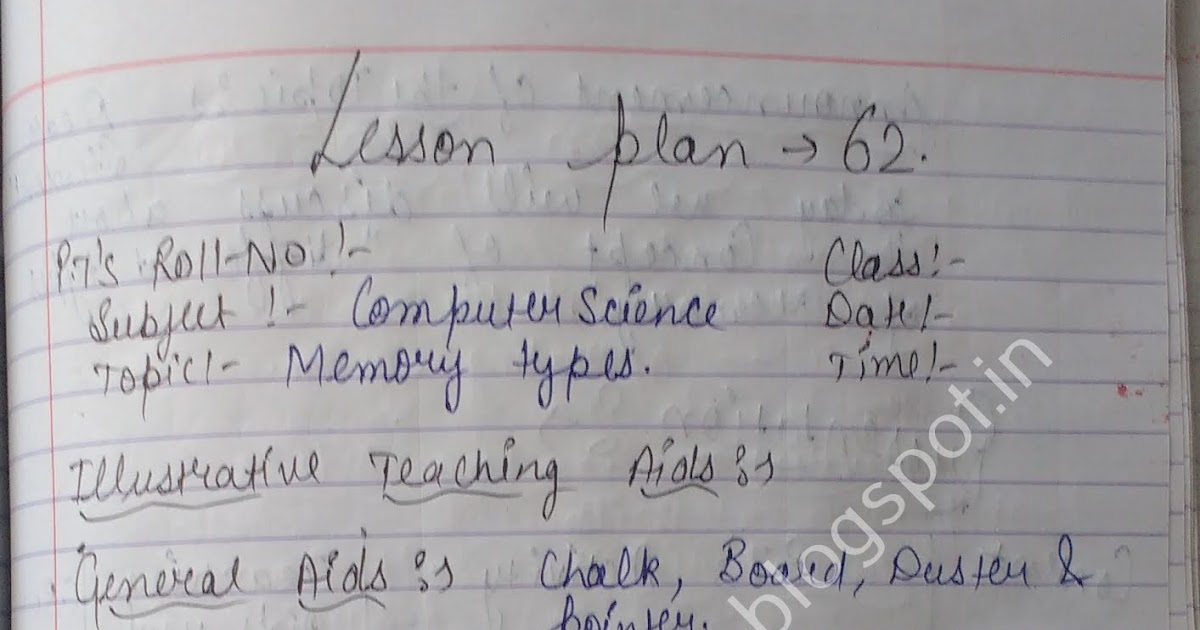 Lesson plan → 62.
P.T's Roll-No!- Class!-
Subject !- Computer Science Date!-
Topic!- Memory types. Time!-
Illustrative Teaching Aids :→
General Aids :→ Chalk, Board, Duster &
Pointer.
blogspot.in